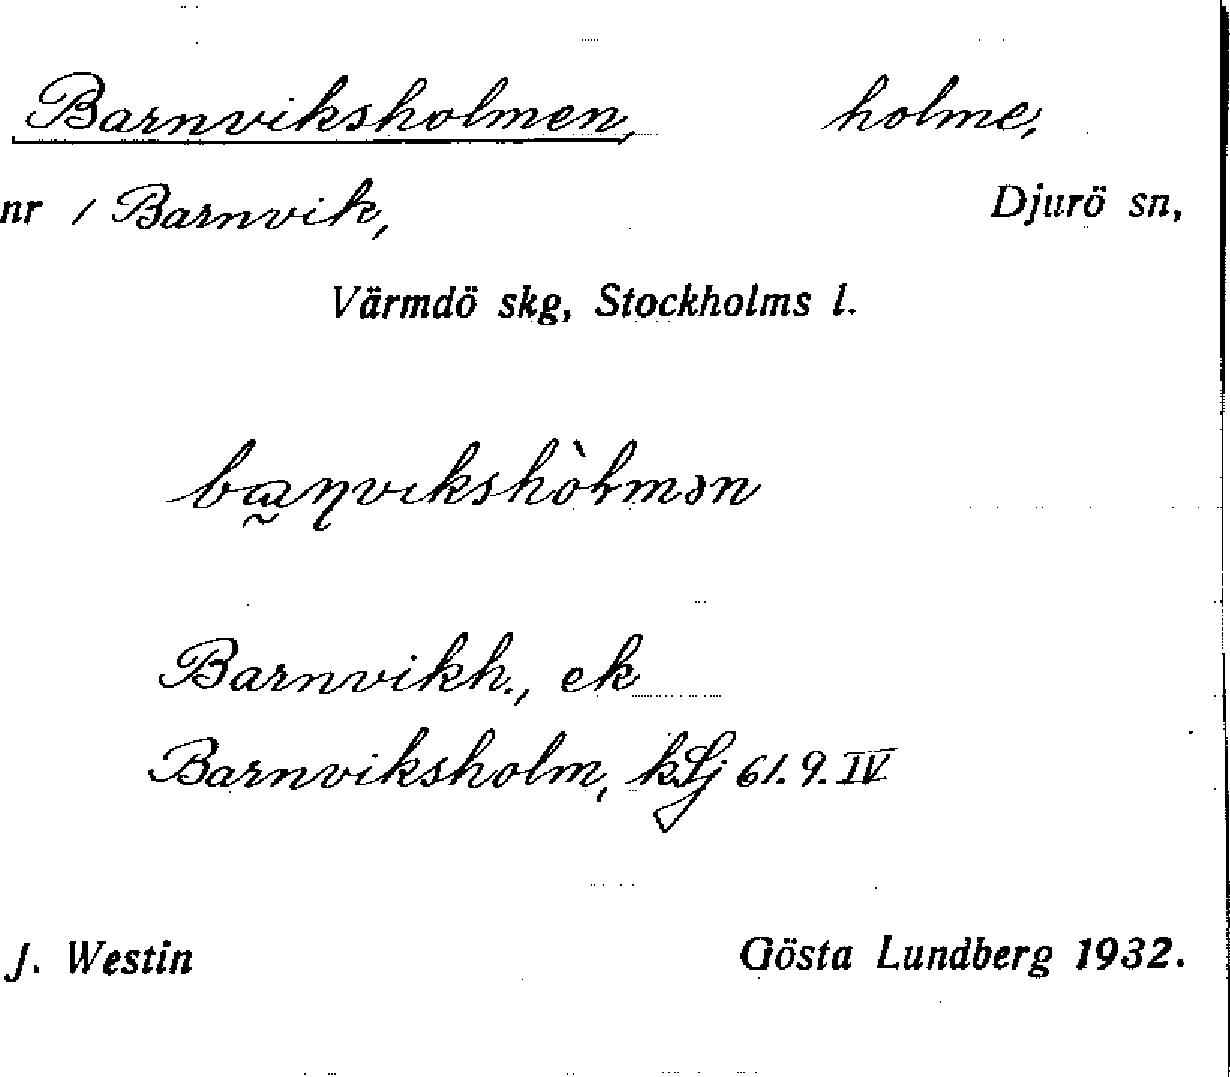 Barnviksholmen, holme,
nr 1 Barnvik, Djurö sn,
Värmdö skg, Stockholms l.
Barnvikh., ek
Barnviksholm, kSj 61.9.IV
J. Westin Gösta Lundberg 1932.